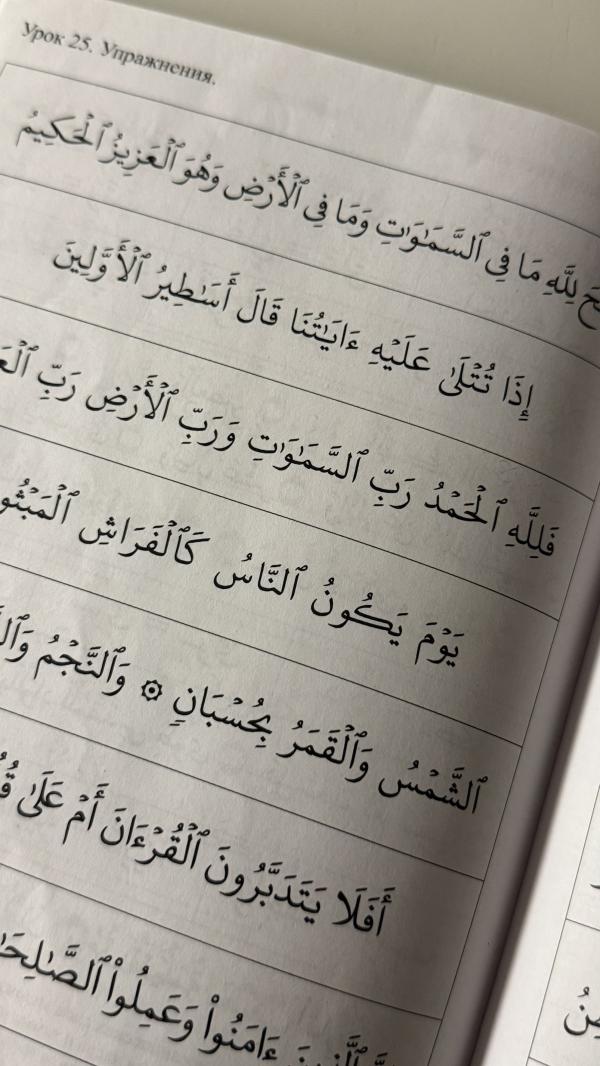 Урок 25. Упражнения.
لِلَّهِ مَا فِي ٱلسَّمَٰوَٰتِ وَمَا فِي ٱلْأَرْضِ وَهُوَ ٱلْعَزِيزُ ٱلْحَكِيمُ
إِذَا تُتْلَىٰ عَلَيْهِ ءَايَٰتُنَا قَالَ أَسَٰطِيرُ ٱلْأَوَّلِينَ
فَلِلَّهِ ٱلْحَمْدُ رَبِّ ٱلسَّمَٰوَٰتِ وَرَبِّ ٱلْأَرْضِ رَبِّ
يَوْمَ يَكُونُ ٱلنَّاسُ كَٱلْفَرَاشِ
ٱلشَّمْسُ وَٱلْقَمَرُ بِحُسْبَانٍ ۞ وَٱلنَّجْمُ
أَفَلَا يَتَدَبَّرُونَ ٱلْقُرْءَانَ أَمْ عَلَىٰ
ءَامَنُوا۟ وَعَمِلُوا۟